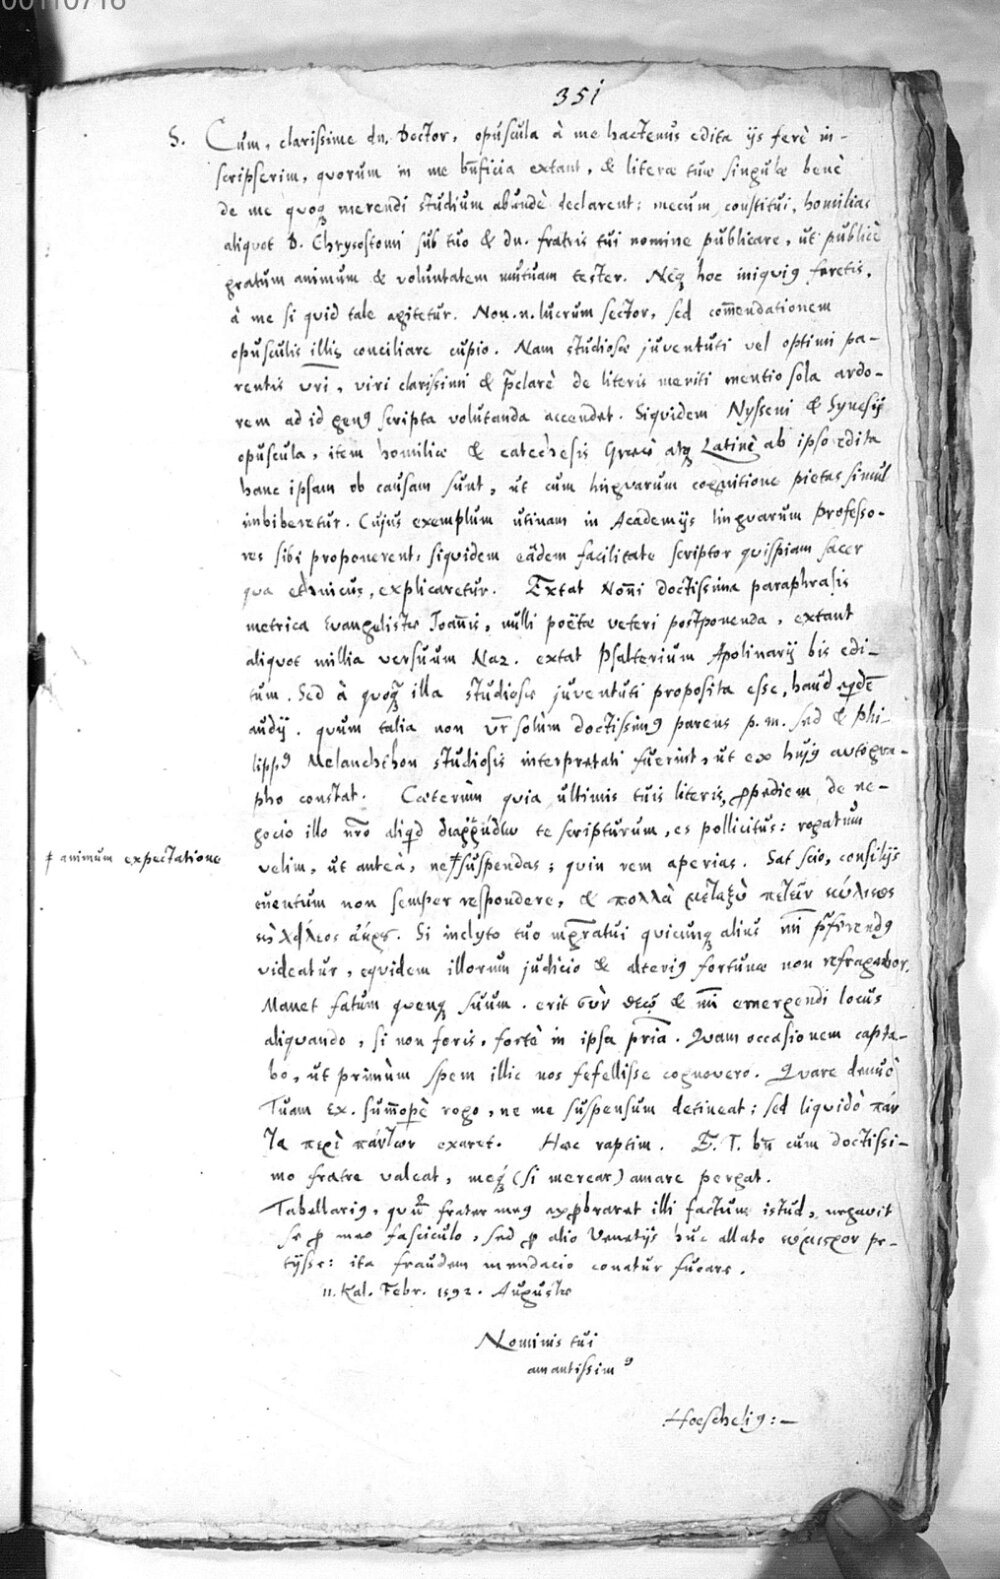 00110716
351
S. Cum, clarissime dn. Doctor, opuscula à me hactenus edita ijs ferè in-
scripserim, quorum in me bn̄ficia extant, & literæ tuæ singulæ benè
de me quoq; merendi studium abundè declarent: mecum constitui, homilias
aliquot D. Chrysostomi sub tuo & dn. fratris tui nomine publicare, ut publicè
gratum animum & voluntatem mutuam tester. Neq; hoc iniquiꝰ feretis,
à me si quid tale agitetur. Non .n. lucrum sector, sed com̄endationem
opusculis illis conciliare cupio. Nam studiosæ juventuti vel optimi pa-
rentis vr̄i, viri clarissimi & p̄clarè de literis meriti mentio sola ardo-
rem ad id genꝰ scripta volutanda accendet. Siquidem Nysseni & Synesij
opuscula, item homiliæ & catechesis Græcè atq; Latinè ab ipso edita
hanc ipsam ob causam sunt, ut cum linguarum cognitione pietas simul
imbiberetur. Cujus exemplum utinam in Academijs linguarum professo-
res sibi proponerent, siquidem eâdem facilitate scriptor quispiam sacer
qua ethnicus, explicaretur. Extat Non̄i doctissima paraphrasis
metrica Evangelistæ Joan̄is, nulli poëtæ veteri postponenda, extant
aliquot millia versuum Naz. extat Psalterium Apolinarij bis edi-
tum. Sed à quoq; illa studiosæ juventuti proposita esse, haud eqdē
audij. quum talia non vr̄ solùm doctissimꝰ parens p. m. sed & Phi-
lippꝰ Melanchthon studiosis interpretati fuerint, ut ex hujꝰ autogra-
pho constat. Cæterùm quia ultimis tuis literis, ꝓpediem de ne-
gocio illo nr̄o aliqd διαῤῥήδην te scripturum, es pollicitus: rogatum
velim, ut anteà, ne suspendas; quin rem aperias. Sat scio, consilijs
animum expectatione
euentum non semper respondere, & πολλὰ μεταξὺ πέλει κύλικος
καὶ χείλεος ἄκρου. Si inclyto tuo mgratui quicunq; alius mī p̄ferendꝰ
videatur, equidem illorum judicio & alteriꝰ fortunæ non refragabor.
Manet fatum quenq; suum. erit σὺν θεῷ & mī emergendi locus
aliquando, si non foris, fortè in ipsa pr̄ia. Quam occasionem capta-
bo, ut primùm spem illic nos fefellisse cognovero. Quare denuò
Tuam Ex. sum̄operè rogo, ne me suspensum detineat; sed liquidò πάν
τα περὶ πάντων exaret. Hæc raptim. E. T. bn̄ cum doctissi-
mo fratre valeat, meq; (si merear) amare pergat.
Tabellariꝰ, quū frater meꝰ exꝓbraret illi factum istud, negavit
se ꝓ meo fasciculo, sed ꝓ alio Venetijs huc allato κόμιστρον pe-
tijsse: ita fraudem mendacio conatur fucare.
11. Kal. Febr. 1592. Augustæ
Nominis tui
amantissimꝰ
Hoescheliꝰ:—